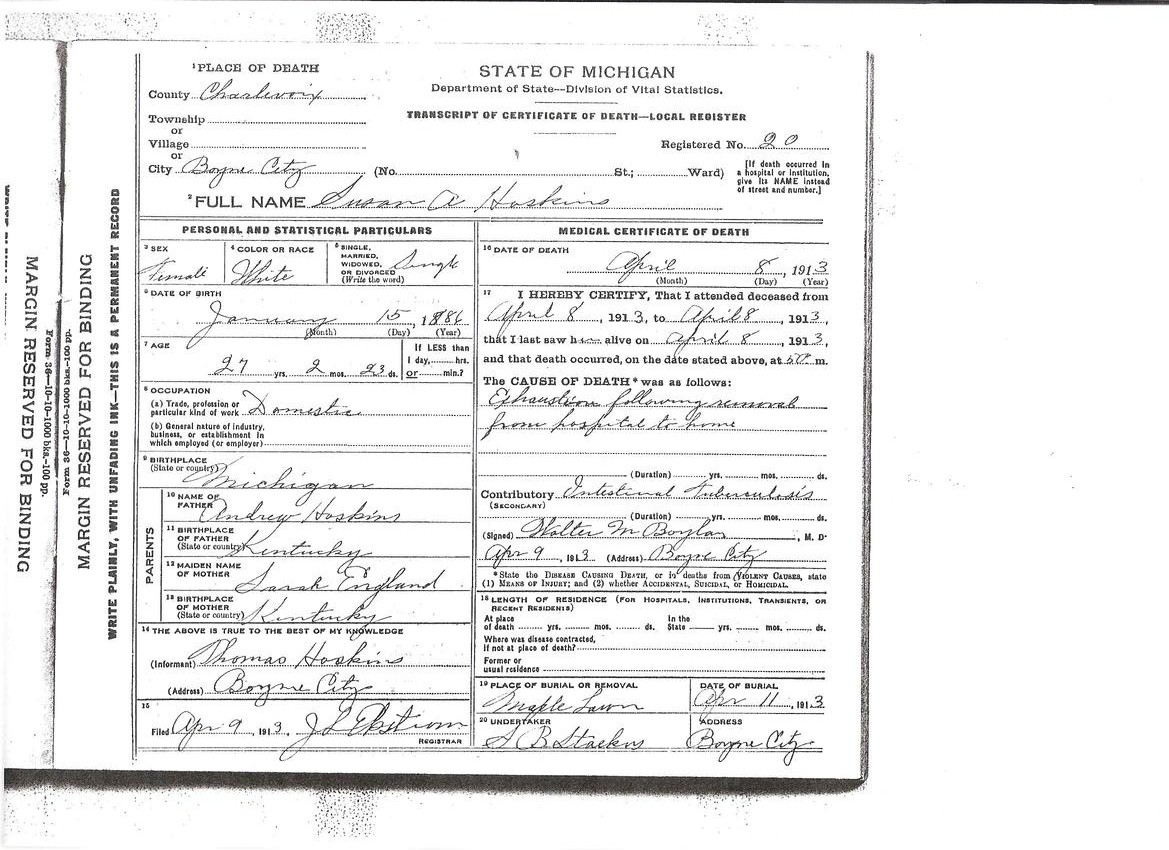 ¹PLACE OF DEATH
County Charlevoix
Township
or
Village
or
City Boyne City (No. St.; Ward)
STATE OF MICHIGAN
Department of State--Division of Vital Statistics.
TRANSCRIPT OF CERTIFICATE OF DEATH—LOCAL REGISTER
Registered No. 20
[If death occurred in
a hospital or institution,
give its NAME instead
of street and number.]
²FULL NAME Susan A Hoskins
PERSONAL AND STATISTICAL PARTICULARS
³ SEX
Female
⁴ COLOR OR RACE
White
⁵ SINGLE,
MARRIED,
WIDOWED,
OR DIVORCED
(Write the word)
Single
⁶ DATE OF BIRTH
January 15, 1886
(Month) (Day) (Year)
⁷ AGE
27 yrs. 2 mos. 23 ds.
If LESS than
1 day, hrs.
or min.?
⁸ OCCUPATION
(a) Trade, profession or
particular kind of work Domestic
(b) General nature of industry,
business, or establishment in
which employed (or employer)
⁹ BIRTHPLACE
(State or country)
Michigan
PARENTS
¹⁰ NAME OF
FATHER Andrew Hoskins
¹¹ BIRTHPLACE
OF FATHER
(State or country) Kentucky
¹² MAIDEN NAME
OF MOTHER Sarah England
¹³ BIRTHPLACE
OF MOTHER
(State or country) Kentucky
¹⁴ THE ABOVE IS TRUE TO THE BEST OF MY KNOWLEDGE
(Informant) Thomas Hoskins
(Address) Boyne City
¹⁵
Filed Apr 9, 1913, J L Ekstrom
REGISTRAR
MEDICAL CERTIFICATE OF DEATH
¹⁶ DATE OF DEATH
April 8, 1913
(Month) (Day) (Year)
¹⁷ I HEREBY CERTIFY, That I attended deceased from
April 8, 1913, to April 8, 1913,
that I last saw her alive on April 8, 1913,
and that death occurred, on the date stated above, at m.
The CAUSE OF DEATH* was as follows:
Exhaustion following removal
from hospital to home
(Duration) yrs. mos. ds.
Contributory Intestinal Tuberculosis
(SECONDARY)
(Duration) yrs. mos. ds.
(Signed) Walter M Boylan, M. D.
Apr 9, 1913 (Address) Boyne City
*State the DISEASE CAUSING DEATH, or in deaths from VIOLENT CAUSES, state
(1) MEANS OF INJURY; and (2) whether ACCIDENTAL, SUICIDAL, or HOMICIDAL.
¹⁸ LENGTH OF RESIDENCE (FOR HOSPITALS, INSTITUTIONS, TRANSIENTS, OR
RECENT RESIDENTS)
At place
of death yrs. mos. ds.
In the
State yrs. mos. ds.
Where was disease contracted,
if not at place of death?
Former or
usual residence
¹⁹ PLACE OF BURIAL OR REMOVAL
Maple Lawn
DATE OF BURIAL
Apr 11, 1913
²⁰ UNDERTAKER
S B Stackus
ADDRESS
Boyne City
WRITE PLAINLY, WITH UNFADING INK—THIS IS A PERMANENT RECORD
MARGIN RESERVED FOR BINDING
Form 36—10-10-1000 bks.-100 pp.
Form 36—10-10-1000 bks.-100 pp.
MARGIN RESERVED FOR BINDING